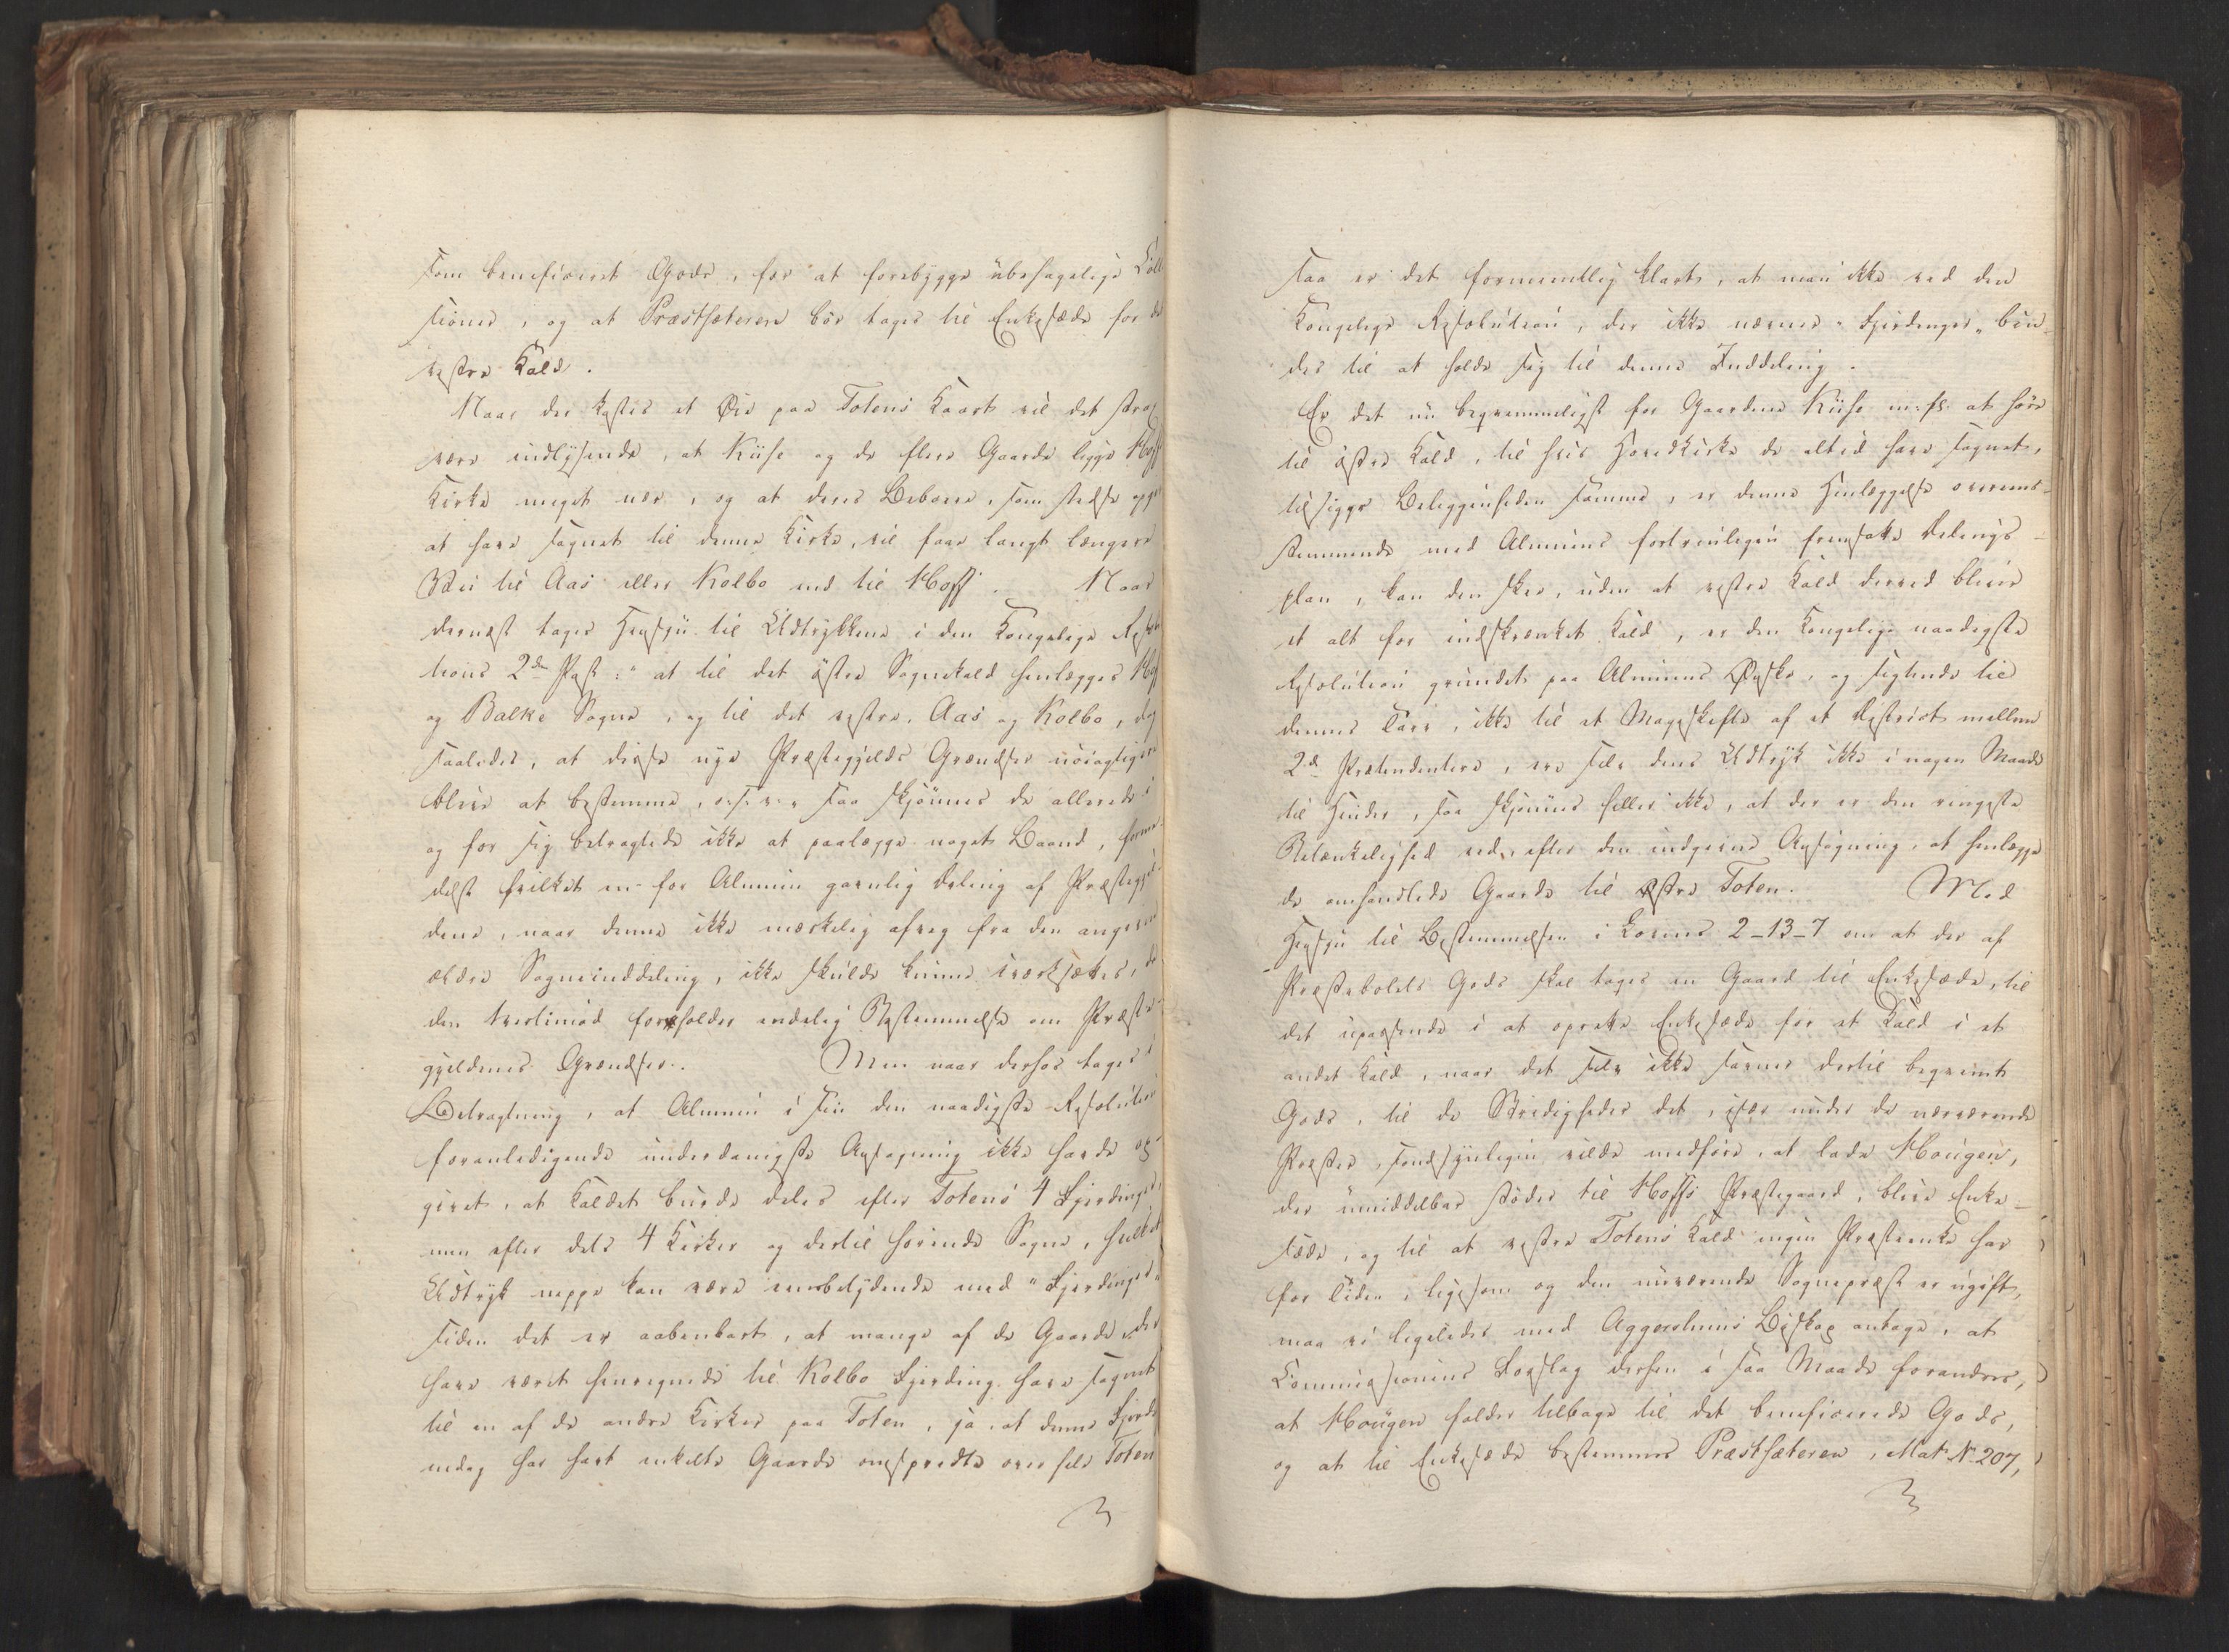 som beneficeret Gods, for at forebygge ubehagelige Colli-
sioner, og at Præstsæteren bör tages til Enkesæde for det
vestre Kald.
Naar der kastes et Öie paa Totens Kaart vil det strax
være indlysende, at Kiise og de flere Gaarde ligge Hoff
Kirke meget nær, og at deres Beboere, som stedse
at have sognet til denne Kirke, vil faae langt længere
Vei til Aas eller Kolbo end til Hoff. Naar
dernæst tages Hensyn til Udtrykkene i den Kongelige Resolu-
tions 2den Post: "at til det östre Sognekald henlægges Hoff
og Balke Sogne, og til det vestre, Aas og Kolbo, dog
saaledes, at disse nye Præstegjelds Grændser nöiagtigere
blive at bestemme, o: s: v: " saa skjönnes de allerede i
og for sig betragtede ikke at paalægge noget Baand, forme-
delst hvilket en for Almuen gavnlig Deling af Præstegjel-
dene, naar denne ikke mærkelig afveg fra den angivne
ældre Sogneinddeling, ikke skulde kunne iværksættes, da
den tvertimod forbeholder endelig Bestemmelse om Præste-
gjeldenes Grændser. Men naar derhos tages i
Betragtning, at Almuen i sin den naadigste Resolution
foranledigende underdanigste Ansögning ikke havde op-
givet, at Kaldet burde deles efter Totens 4 Fjerdinger,
men efter dets 4 Kirker og dertil hörende Sogne, hvilket
Udtryk neppe kan være eensbetydende med "Fjerdinger"
siden det er aabenbart, at mange af de Gaarde, der
have været henregnede til Kolbo Fjerding have sognet
til en af de andre Kirker paa Toten, ja at denne Fjerding
endog har havt enkelte Gaarde omspredte over hele Toten
saa er det formeentlig klart, at man ikke ved den
Kongelige Resolution, der ikke nævner "Fjerdinger" bin-
des til at holde sig til denne Inddeling.
Er det nu beqvemmeligst for Gaardene Kiise m: fl: at höre
til östre Kald, til hvis Hovedkirke de altid have sognet,
tilsiger Beliggenheden samme, er denne Henlæggelse overeens-
stemmende med Almuens fortrinligen fremsatte Delings-
plan, kan den skee, uden at vestre Kald derved bliver
et alt for indskrænket Kald, er den Kongelige naadigste
Resolution grundet paa Almuens Önske, og sigtende til
dennes Tarv, ikke til et Mageskifte af et District mellem
2de Prætendentere, ere selv dens Udtryk ikke i nogen Maade
til Hinder, saa skjönnes heller ikke, at der er den ringeste
Betænkelighed ved, efter den indgivne Ansögning, at henlægge
de omhandlede Gaarde til östre Toten. Med
Hensyn til Bestemmelsen i Lovens 2-13-7 om at der af
Præstebolets Gods skal tages en Gaard til Enkesæde, til
det upassende i at oprette Enkesæde for et Kald i et
andet Kald, naar det selv ikke savner dertil beqvemt
Gods, til de Stridigheder det, især under de nærværende
Præster, sandsynligen vilde medföre, at lade Hougen,
der umiddelbar stöder til Hoffs Præstegaard, blive Enke-
sæde, og til at vestre Totens Kald ingen Præsteenke har
for Tiden, ligesom og den nuværende Sognepræst er ugift,
maa vi ligeledes med Aggershuus Biskop antage, at
Commissionens Forslag derhen i saa Maade forandres,
at Hougen falder tilbage til det beneficerede Gods,
og at til Enkesæde bestemmes Præstsæteren, Mat. No 207,